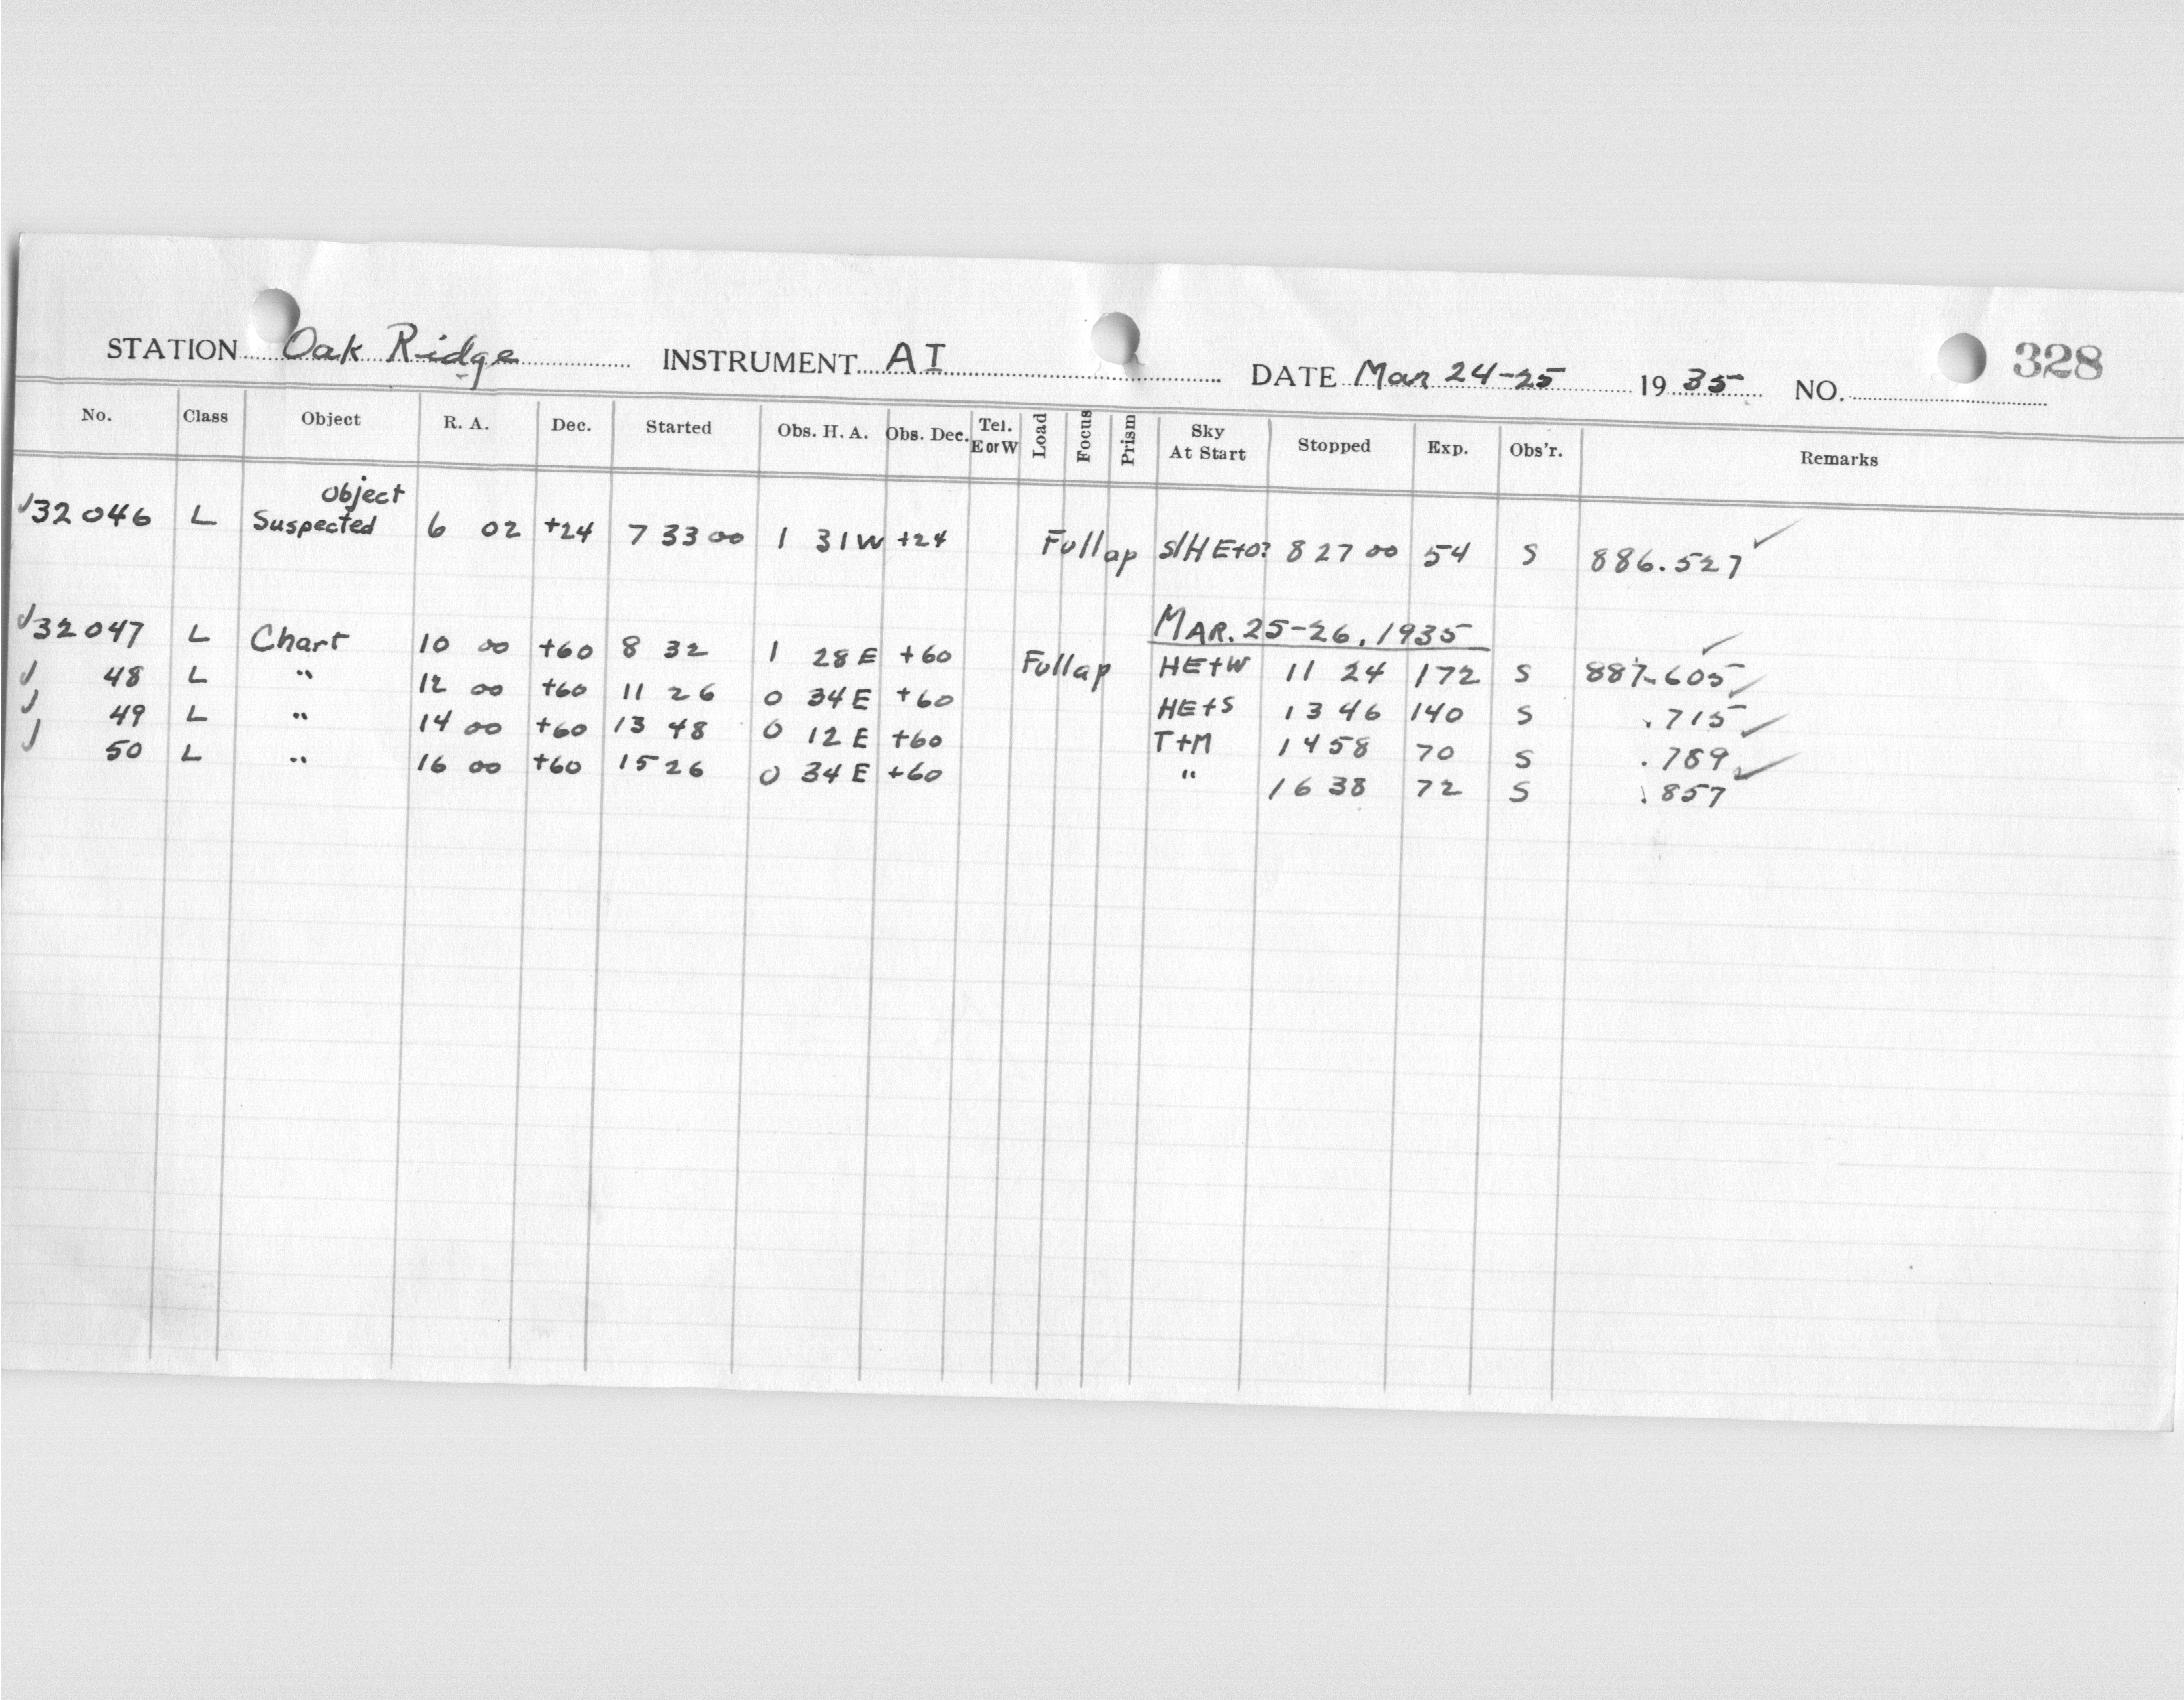 STATION Oak Ridge INSTRUMENT AI DATE Mar 24-25 1935 NO. 328
No. Class Object R. A. Dec. Started Obs. H. A. Obs. Dec. Tel. E or W Load Focus Prism Sky At Start Stopped Exp. Obs'r. Remarks
Object
✓32046 L Suspected 6 02 +24 7 33 00 1 31W +24 Full ap S/HE+O? 8 27 00 54 S 886.527 ✓
MAR. 25-26, 1935
✓32047 L Chart 10 00 +60 8 32 1 28E +60 Full ap HE+W 11 24 172 S 887.605 ✓
✓ 48 L " 12 00 +60 11 26 0 34E +60 HE+S 13 46 140 S .715 ✓
✓ 49 L " 14 00 +60 13 48 0 12E +60 T+M 14 58 70 S .789 ✓
✓ 50 L " 16 00 +60 15 26 0 34E +60 " 16 38 72 S .857 ✓